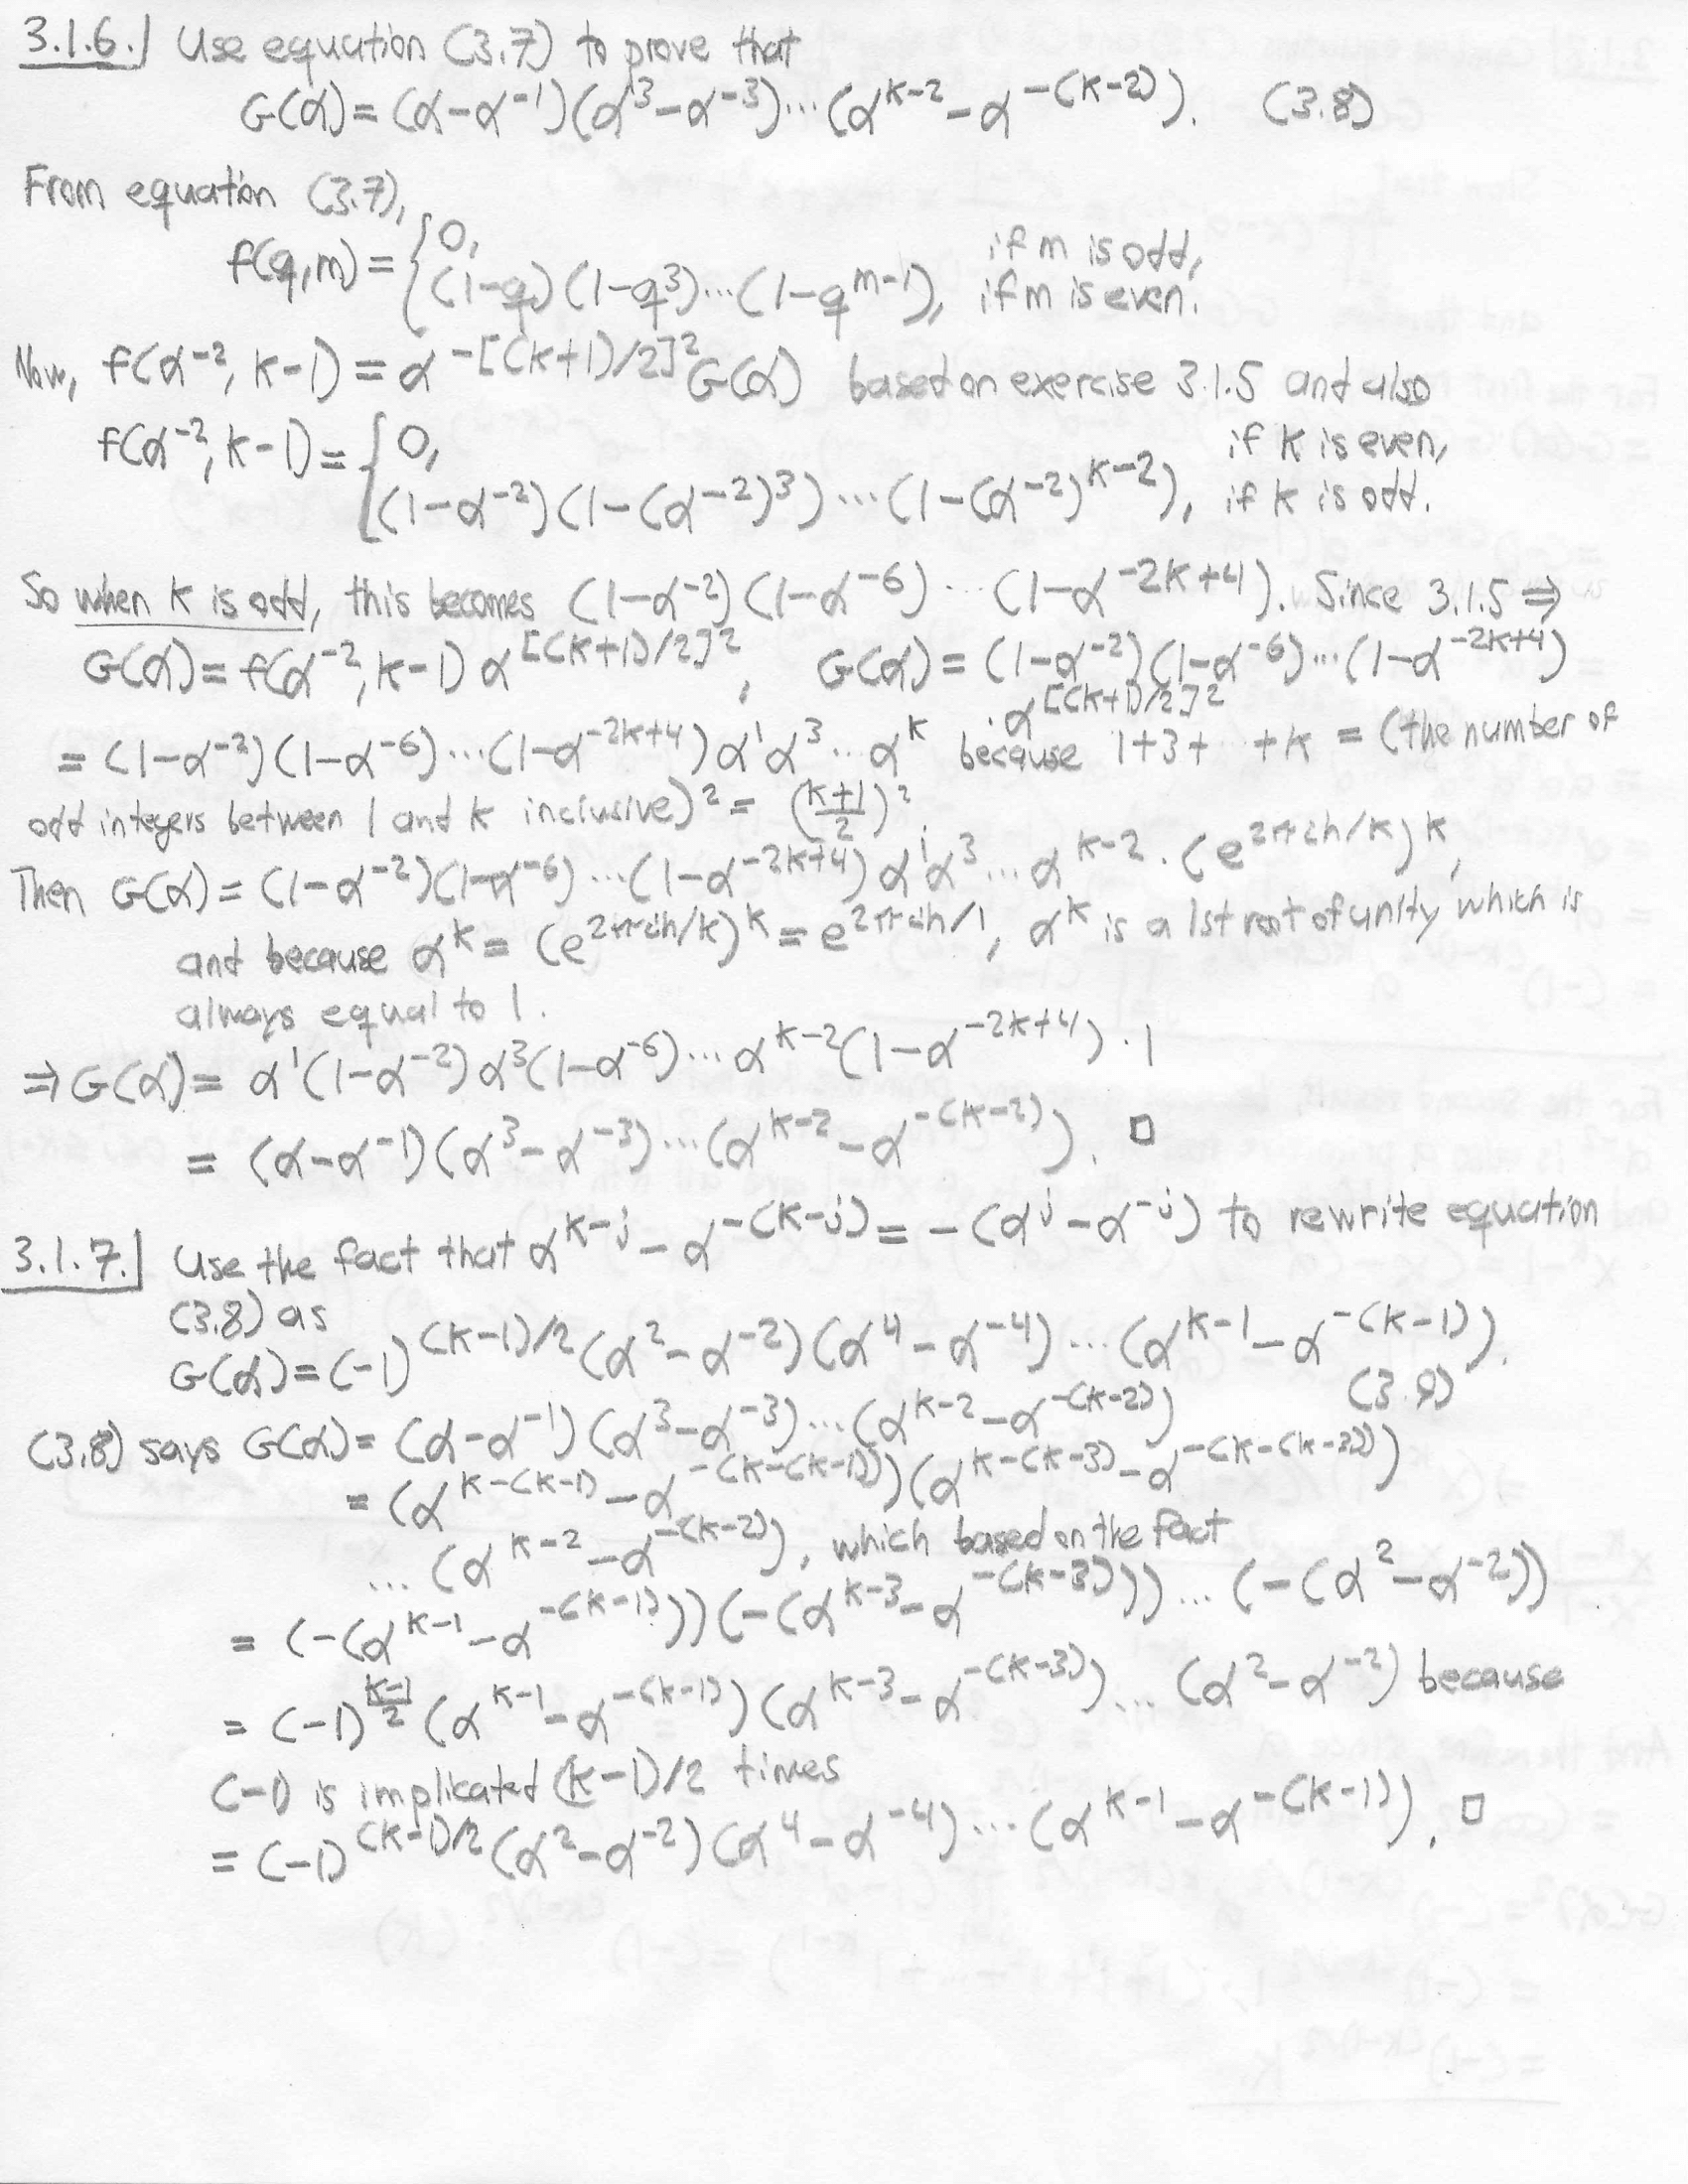 3.1.6. Use equation (3.7) to prove that
G(α) = (α-α^-1)(α^3-α^-3)...(α^{k-2}-α^{-(k-2)}). (3.8)
From equation (3.7),
f(q,m) = { 0, if m is odd,
(1-q)(1-q^3)...(1-q^{m-1}), if m is even.
Now, f(α^-2, k-1) = α^{-[(k+1)/2]^2} G(α) based on exercise 3.1.5 and also
f(α^-2, k-1) = { 0, if k is even,
(1-α^-2)(1-(α^-2)^3)...(1-(α^-2)^{k-2}), if k is odd.
So when k is odd, this becomes (1-α^-2)(1-α^-6)...(1-α^{-2k+4}). Since 3.1.5 ⇒
G(α) = f(α^-2, k-1) α^{[(k+1)/2]^2}, G(α) = (1-α^-2)(1-α^-6)...(1-α^{-2k+4})
· α^{[(k+1)/2]^2}
= (1-α^-2)(1-α^-6)...(1-α^{-2k+4}) α^1 α^3 ... α^k because 1+3+...+k = (the number of
odd integers between 1 and k inclusive)^2 = ((k+1)/2)^2.
Then G(α) = (1-α^-2)(1-α^-6)...(1-α^{-2k+4}) α^1 α^3 ... α^{k-2} · (e^{2πih/k})^k,
and because α^k = (e^{2πih/k})^k = e^{2πih/1}, α^k is a 1st root of unity which is
always equal to 1.
⇒ G(α) = α^1(1-α^-2) α^3(1-α^-6)...α^{k-2}(1-α^{-2k+4}) · 1
= (α-α^-1)(α^3-α^-3)...(α^{k-2}-α^{-(k-2)}). □
3.1.7. Use the fact that α^{k-j} - α^{-(k-j)} = -(α^j - α^-j) to rewrite equation
(3.8) as
G(α) = (-1)^{(k-1)/2} (α^2-α^-2)(α^4-α^-4)...(α^{k-1}-α^{-(k-1)}).
(3.9)
(3.8) says G(α) = (α-α^-1)(α^3-α^-3)...(α^{k-2}-α^{-(k-2)})
= (α^{k-(k-1)} - α^{-(k-(k-1))})(α^{k-(k-3)} - α^{-(k-(k-3))})
...(α^{k-2} - α^{-(k-2)}), which based on the fact
= (-(α^{k-1} - α^{-(k-1)}))(-(α^{k-3} - α^{-(k-3)}))...(-(α^2-α^-2))
= (-1)^{(k-1)/2} (α^{k-1} - α^{-(k-1)})(α^{k-3} - α^{-(k-3)})...(α^2-α^-2) because
(-1) is implicated (k-1)/2 times
= (-1)^{(k-1)/2} (α^2-α^-2)(α^4-α^-4)...(α^{k-1}-α^{-(k-1)}). □